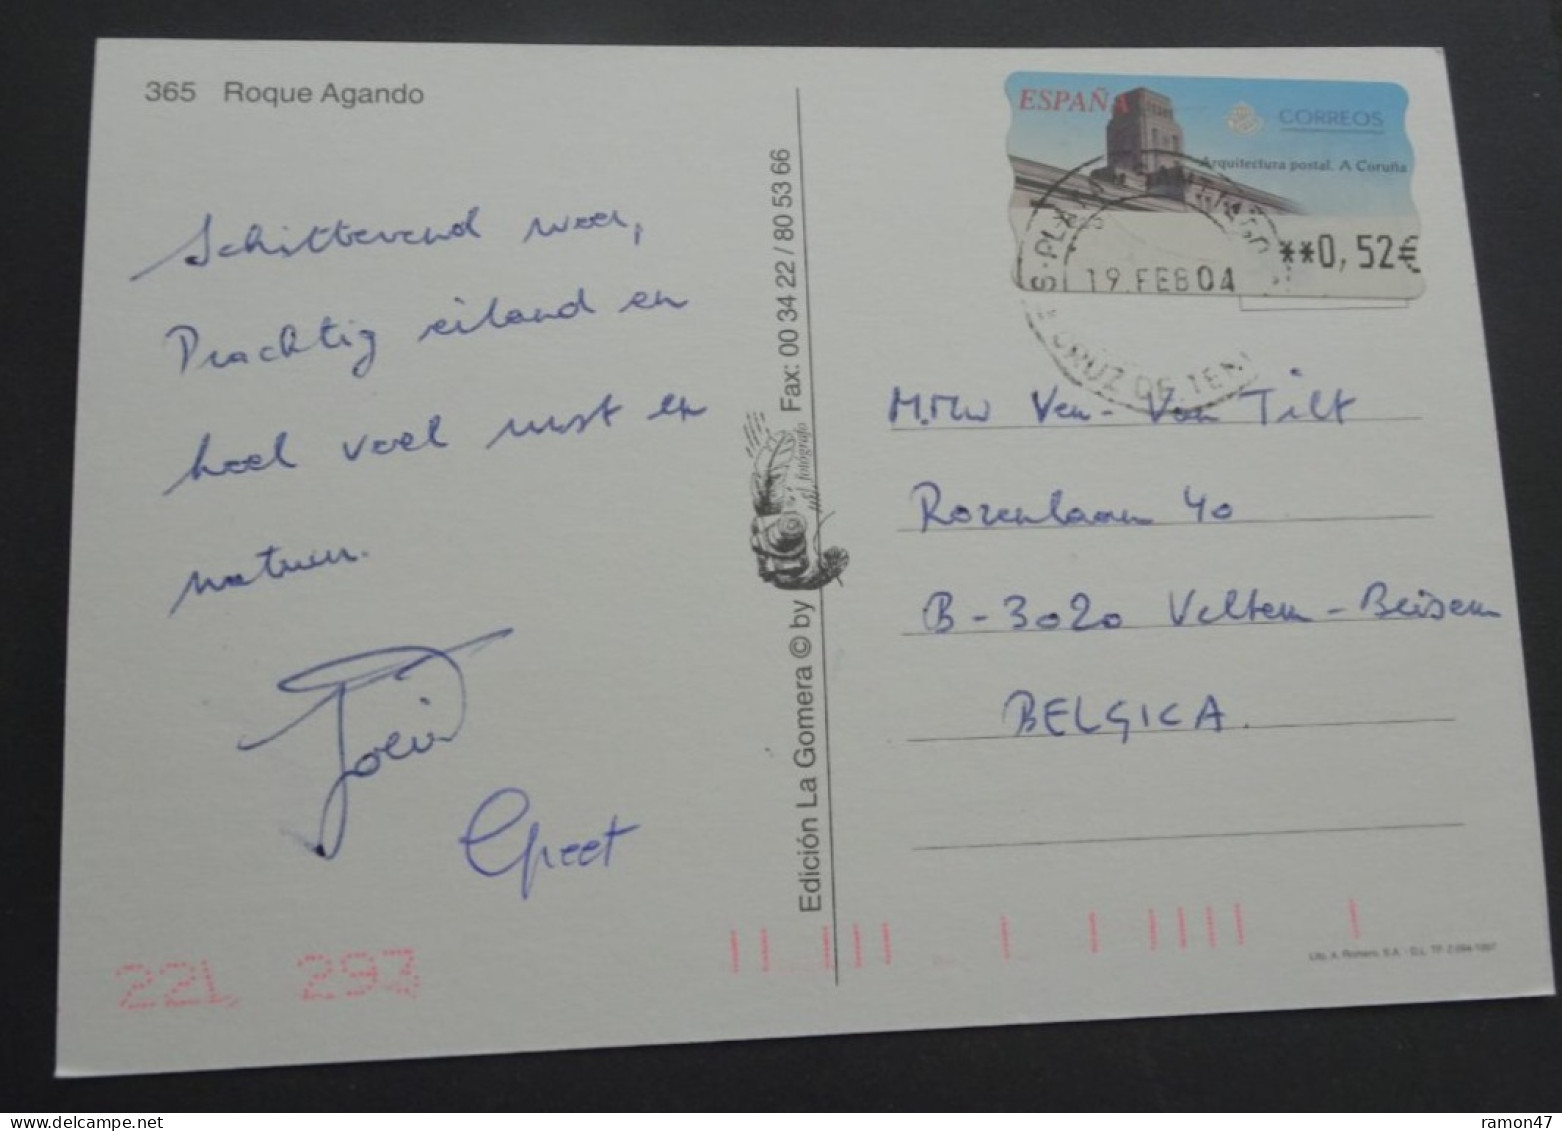 365 Roque Agando
Schitterend weer,
Prachtig eiland en
heel veel rust en
natuur.
Greet
22L 297
Edición La Gomera © by
fotógrafo
Fax: 00 34 22 / 80 53 66
ESPAÑA
CORREOS
Arquitectura postal. A Coruña
**0,52€
19 FEB 04
CRUZ DE TEN
M.Mw Ven - Van Tilt
Rozenlaan 40
B - 3020 Veltem - Beisem
BELGICA.
Lito. A. Romero, S.A. - D.L. TF. 2.094-1997
delcampe.net
ramon47